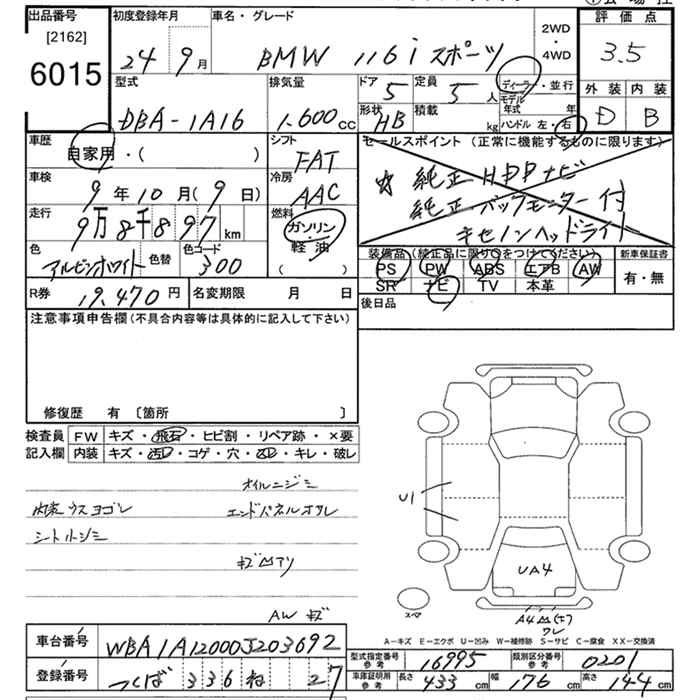 出品番号 初度登録年月 車名・グレード 評価点
[2162]
6015
24 9月 BMW 116i スポーツ 2WD・4WD 3.5
型式 排気量 ドア 定員 ディーラー・並行 外装 内装
DBA-1A16 1,600cc 5 5人 モデル年式 年 D B
形状 積載 HB kg ハンドル 左・右
車歴 シフト セールスポイント (正常に機能するものに限ります)
自家用・( ) FAT
車検 冷房 ☆純正HDDナビ
9年10月(9日) AAC 純正バックモニター付
走行 燃料 キセノンヘッドライト
9万8千897km ガソリン
色 色替 色コード 軽油
アルピンホワイト 300 ( )
装備品(純正品に限り○をつけてください) 新車保証書
PS PW ABS エアB AW 有・無
SR ナビ TV 本革
R券 19,470円 名変期限 月 日 後日品
注意事項申告欄(不具合内容等は具体的に記入して下さい)
修復歴 有 〔箇所 〕
検査員 FW キズ・飛石・ヒビ割・リペア跡・×要
記入欄 内装 キズ・汚レ・コゲ・穴・スレ・キレ・破レ
オイルニジミ
内装ウスヨゴレ エンドパネルオサレ
シートシミ
U1
UA4
スペア
AW キズ
A-キズ E-エクボ U-凹み W-補修跡 S-サビ C-腐食 XX-交換済
車台番号 WBA1A12000J203692
型式指定番号 参考 16995 類別区分番号 参考 0201
登録番号 つくば 336 ね 27
車庫証明用 参考 長さ 433cm 幅 176cm 高さ 144cm